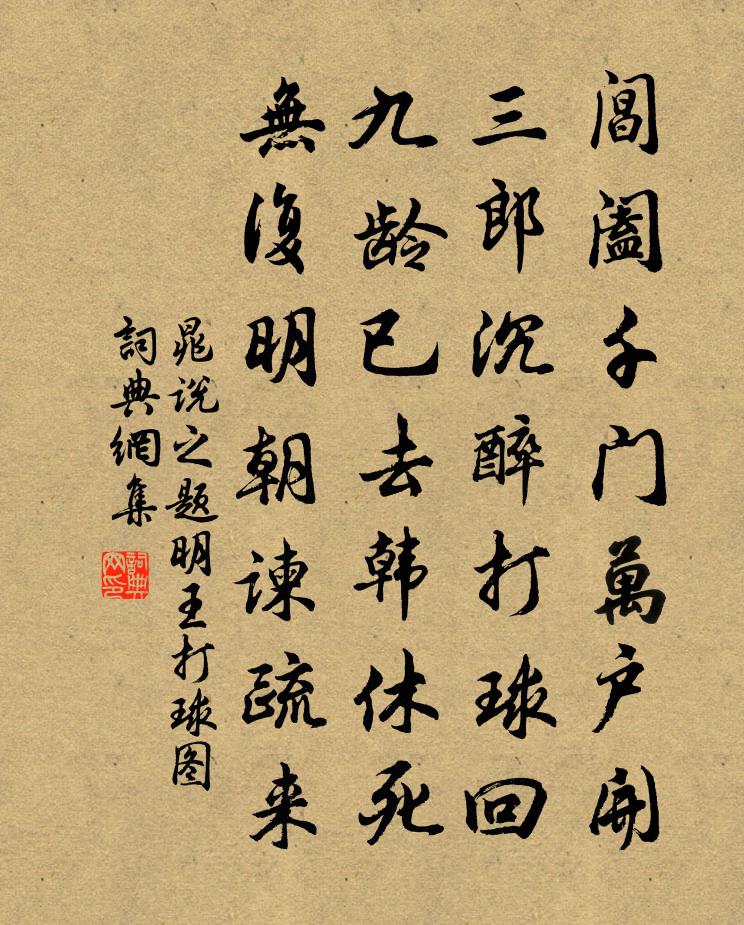 阊阖千门萬户開
三郎沉醉打球回
九龄已去韩休死
無復明朝谏疏来
晁说之题明王打球图
詞典網集
詞典网印